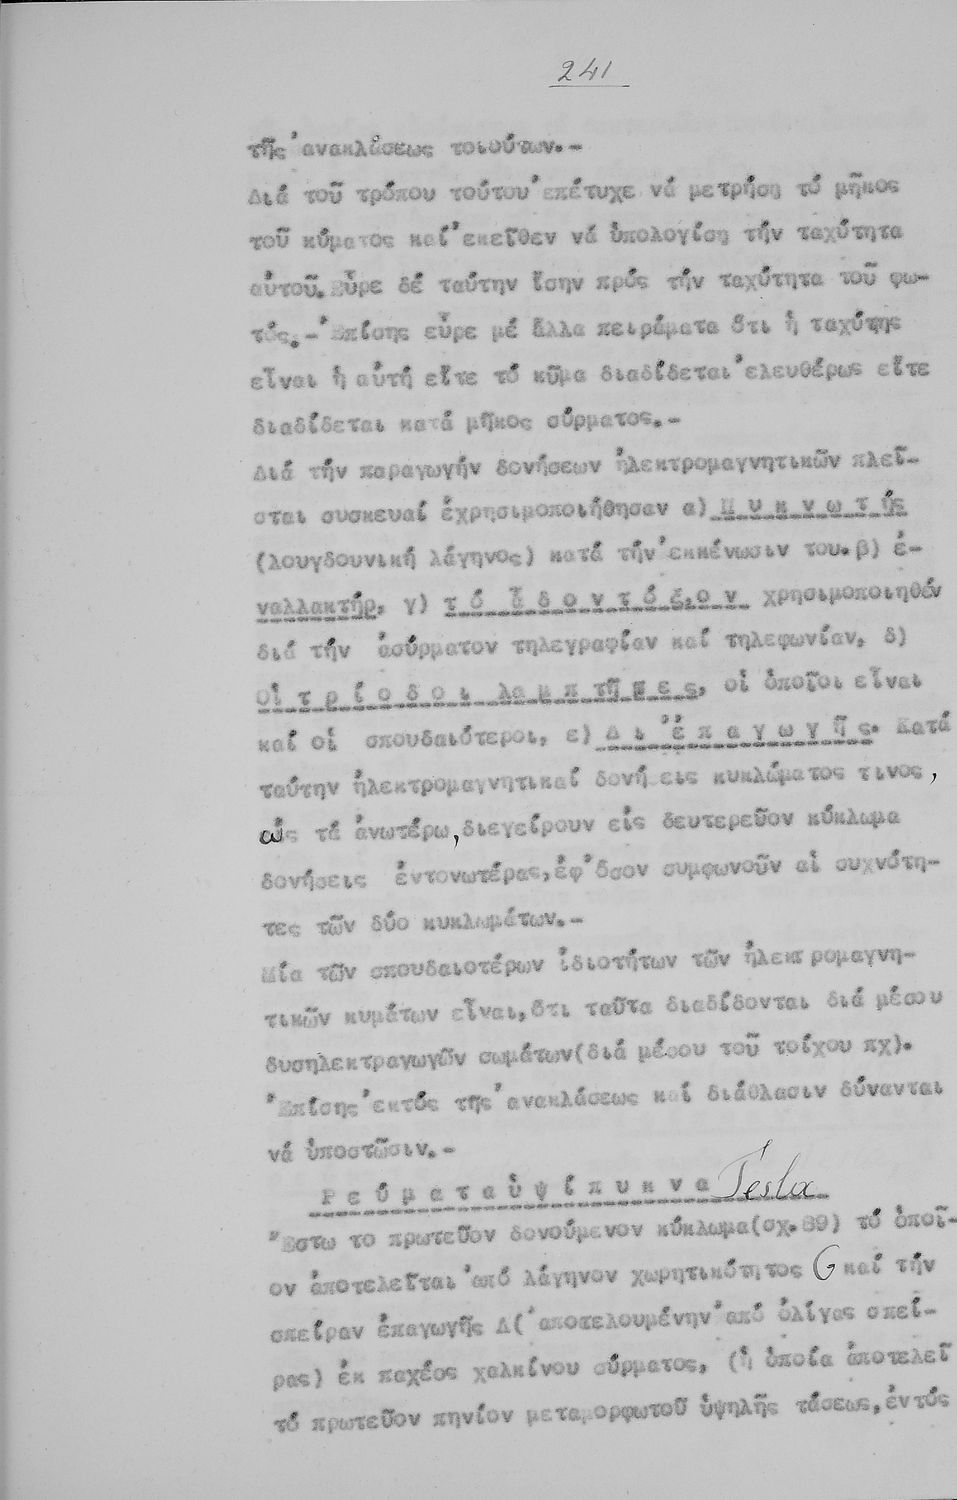 241
τῆς ἀνακλάσεως τοιούτων.-
Διά τοῦ τρόπου τούτου ἐπέτυχε νά μετρήσῃ τό μῆκος
τοῦ κύματος καί ἐκεῖθεν νά ὑπολογίσῃ τήν ταχύτητα
αὐτοῦ. Εὗρε δέ ταύτην ἴσην πρός τήν ταχύτητα τοῦ φω-
τός.- Ἐπίσης εὗρε μέ ἄλλα πειράματα ὅτι ἡ ταχύτης
εἶναι ἡ αὐτή εἴτε τό κῦμα διαδίδεται ἐλευθέρως εἴτε
διαδίδεται κατά μῆκος σύρματος.-
Διά τήν παραγωγήν δονήσεων ἠλεκτρομαγνητικῶν πλεῖ-
σται συσκευαί ἐχρησιμοποιήθησαν α) Π υ κ ν ω τ ής
(λουγδουνική λάγηνος) κατά τήν ἐκκένωσιν του. β) ἐ-
ναλλακτήρ, γ) τ ό ᾆ δ ο ν τ ό ξ ο ν χρησιμοποιηθέν
διά τήν ἀσύρματον τηλεγραφίαν καί τηλεφωνίαν, δ)
Οἱ τ ρ ί ο δ ο ι λα μ π τῆ ρ ε ς, οἱ ὁποῖοι εἶναι
καί οἱ σπουδαιότεροι, ε) Δ ι ᾽ἐ π α γ ω γ ῆ ς. Κατά
ταύτην ἠλεκτρομαγνητικαί δονή εις κυκλώματος τινος,
ὡς τά ἀνωτέρω, διεγείρουν εἰς δευτερεῦον κύκλωμα
δονήσεις ἐντονωτέρας, ἐφ᾽ὅσον συμφωνοῦν αἱ συχνότη-
τες τῶν δύο κυκλωμάτων.-
Μία τῶν σπουδαιοτέρων ἰδιοτήτων τῶν ἠλεκτρομαγνη-
τικῶν κυμάτων εἶναι, ὅτι ταῦτα διαδίδονται διά μέσου
δυσηλεκτραγωγῶν σωμάτων(διά μέσου τοῦ τοίχου πχ).
Ἐπίσης ἐκτός τῆς ἀνακλάσεως καί διάθλασιν δύνανται
νά ὑποστῶσιν.-
Ρ ε ύ μ α τ α ὑ ψ ί π υ κ ν α Tesla
Ἔστω το πρωτεῦον δονούμενον κύκλωμα(σχ.89) τό ὁποῖ-
ον ἀποτελεῖται ἀπό λάγηνον χωρητικότητος G καί τήν
σπείραν ἐπαγωγῆς Δ( ἀποτελουμένην ἀπό ὀλίγας σπεί-
ρας) ἐκ παχέος χαλκίνου σύρματος, (ἡ ὁποία ἀποτελεῖ
τό πρωτεῦον πηνίον μεταμορφωτοῦ ὑψηλῆς τάσεως, ἐντός